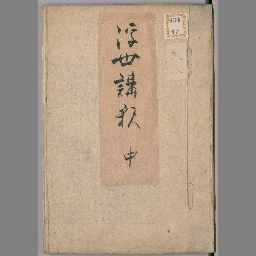 浮世講釈 中